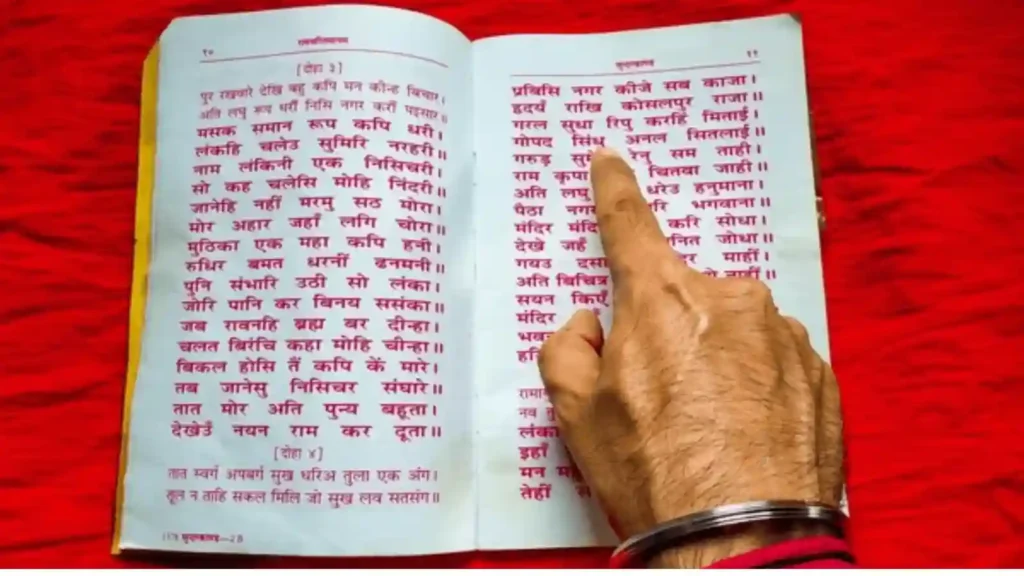 १०
[दोहा ३]
पुर रखवारे देखि बहु कपि मन कीन्ह बिचार।
अति लघु रूप धरौं निसि नगर करौं पइसार॥
मसक समान रूप कपि धरी।
लंकहि चलेउ सुमिरि नरहरी॥
नाम लंकिनी एक निसिचरी।
सो कह चलेसि मोहि निंदरी॥
जानेहि नहीं मरमु सठ मोरा।
मोर अहार जहाँ लगि चोरा॥
मुठिका एक महा कपि हनी।
रुधिर बमत धरनीं ढनमनी॥
पुनि संभारि उठी सो लंका।
जोरि पानि कर बिनय ससंका॥
जब रावनहि ब्रह्म बर दीन्हा।
चलत बिरंचि कहा मोहि चीन्हा॥
बिकल होसि तैं कपि कें मारे।
तब जानेसु निसिचर संघारे॥
तात मोर अति पुन्य बहूता।
देखेउँ नयन राम कर दूता॥
[दोहा ४]
तात स्वर्ग अपबर्ग सुख धरिअ तुला एक अंग।
तूल न ताहि सकल मिलि जो सुख लव सतसंग॥
सुन्दरकाण्ड
११
प्रबिसि नगर कीजे सब काजा।
हृदयँ राखि कोसलपुर राजा॥
गरल सुधा रिपु करहिं मिताई।
गोपद सिंधु अनल सितलाई॥
गरुड़ सम ताही।
राम कृपा चितवा जाही॥
अति लघु धरेउ हनुमाना।
पैठा नगर भगवाना॥
मंदिर करि सोधा।
देखे जहँ जोधा॥
गयउ माहीं।
अति बिचित्र नाहीं॥
सयन किएँ
मंदिर
नव
लंका
इहाँ
मन
तेहीं